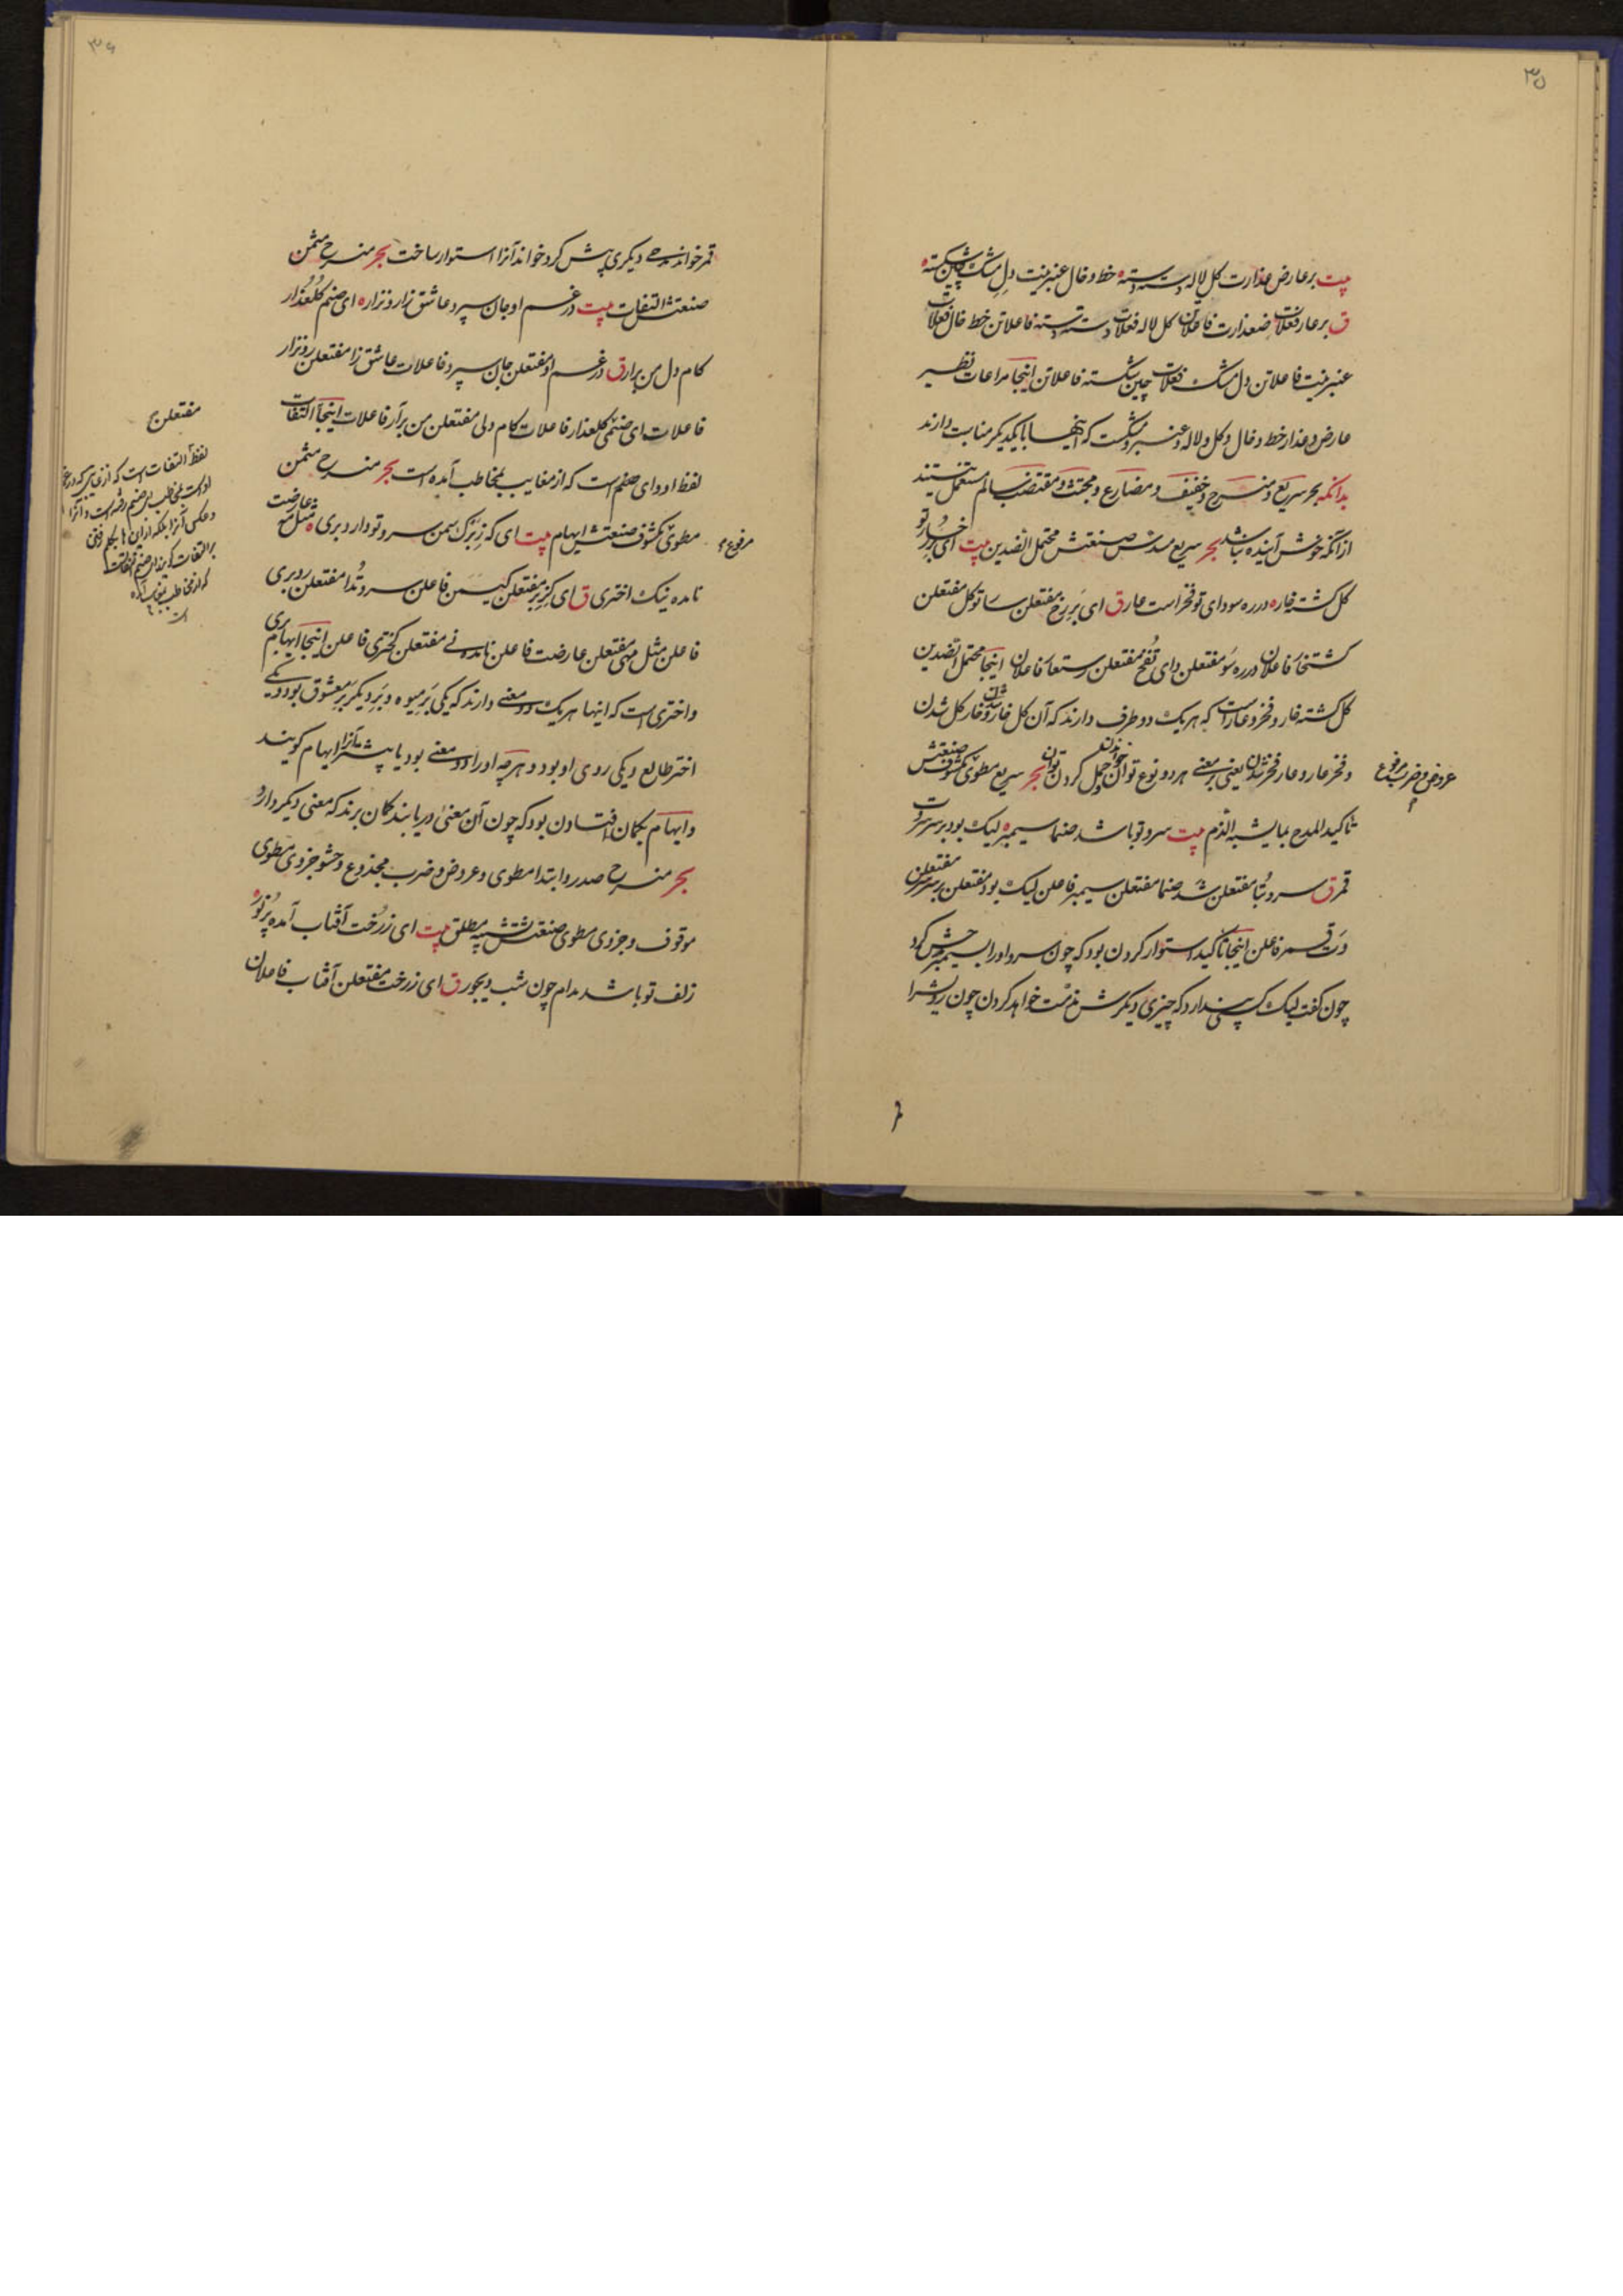 ۳۵
بیت بر عارض عذارت کل لاله دسته دسته ه خط و خال عنبرینت دل مشک چین شکسته ه
ق بر عار فعلات ضعذارت فاعلاتن کل لاله فعلات دسته دسته فاعلاتن خط خال فعلات
عنبرینت فاعلاتن دل مشک فعلات چین شکسته فاعلاتن اینجا مراعات نظیر
عارض و عذار خط و خال و کل و لاله و عنبر و مشکست که اینها با یکدیکر مناسبت دارند
بدانکه بحر سریع و منسرح و خفیف و مضارع و مجتث و مقتضب سالم مستعمل نیستند
از آنکه خوش آینده نباشد بحر سریع مسدس صنعتش محتمل الضدین بیت ای بر رخسار تو
کل کشته خاره در ره سودای تو فخر است عار ق ای بر رخ مفتعلن سا تو کل مفتعلن
کشتخار فاعلان در ره سو مفتعلن دای تفخ مفتعلن رستعار فاعلان اینجا محتمل الضدین
کل کشته خار و فخر و عار است که هر یک دو طرف دارند که آن کل خار شدن و خار کل شدن
و فخر عار و عار فخر شدن یعنی بر معنی هر دو نوع توان خواندن و حمل کردن توان بحر سریع مطوی مکشوف صنعتش
عروض و ضرب مرفوع
تاکید المدح بما یشبه الذم بیت سرو تو باشد صنما سیمبر ه لیک بود بر سر سروت
قمر ق سرو تبا مفتعلن شد صنما مفتعلن سیمبر فاعلن لیک بود مفتعلن بر سر سر مفتعلن
وت قمر فاعلن اینجا تاکید استوار کردن بود که چون سرو او را سیمبر خوش کرد
چون کفت لیک کسی پندارد که چیزی دیکرش مذمت خواهد کردن چون رویش را
۳۶
قمر خواند مدحی دیکری پیش کرد خواند آنرا استوار ساخت بحر منسرح مثمن
صنعتش التفات بیت در غم او جان سپرد عاشق زار و نزار ه ای صنم کلعذار
کام دل من برار ق در غم او مفتعلن جان سپرد فاعلات عاشق زا مفتعلن رونزار
فاعلات ای صنمی کلعذار فاعلات کام دلی مفتعلن من برآر فاعلات اینجا التفات
مفتعلن
لفظ او و ای صنم است که از مغایب بمخاطب آمده است بحر منسرح مثمن
مطوی مکشوف صنعتش ایهام بیت ای که ز برک سمن سرو تو دارد بری ه مثل مه عارضت
مرفوع
نامده نیک اختری ق ای کز بر مفتعلن کیسمن فاعلن سرو تدا مفتعلن رد بری
فاعلن مثل مهی مفتعلن عارضت فاعلن نامده نی مفتعلن کختری فاعلن اینجا ایهام بری
و اختری است که اینها هر یک دو معنی دارند که یکی بر میوه و بر دیکر بر معشوق بود و یکی
اختر طالع و یکی روی او بود و هرچه او را دو معنی بود یا بیشتر آنرا ایهام کویند
و ایهام بکمان افتادن بود که چون آن معنی دریابند کمان برند که معنی دیکر دارد
بحر منسرح صدر و ابتدا مطوی و عروض و ضرب مجذوع و حشو جزوی مطوی
موقوف و جزوی مطوی صنعتش تشبیه مطلق بیت ای ز رخت آفتاب آمده پر نور ه
زلف تو باشد مدام چون شب دیجور ق ای ز رخت مفتعلن آفتاب فاعلان